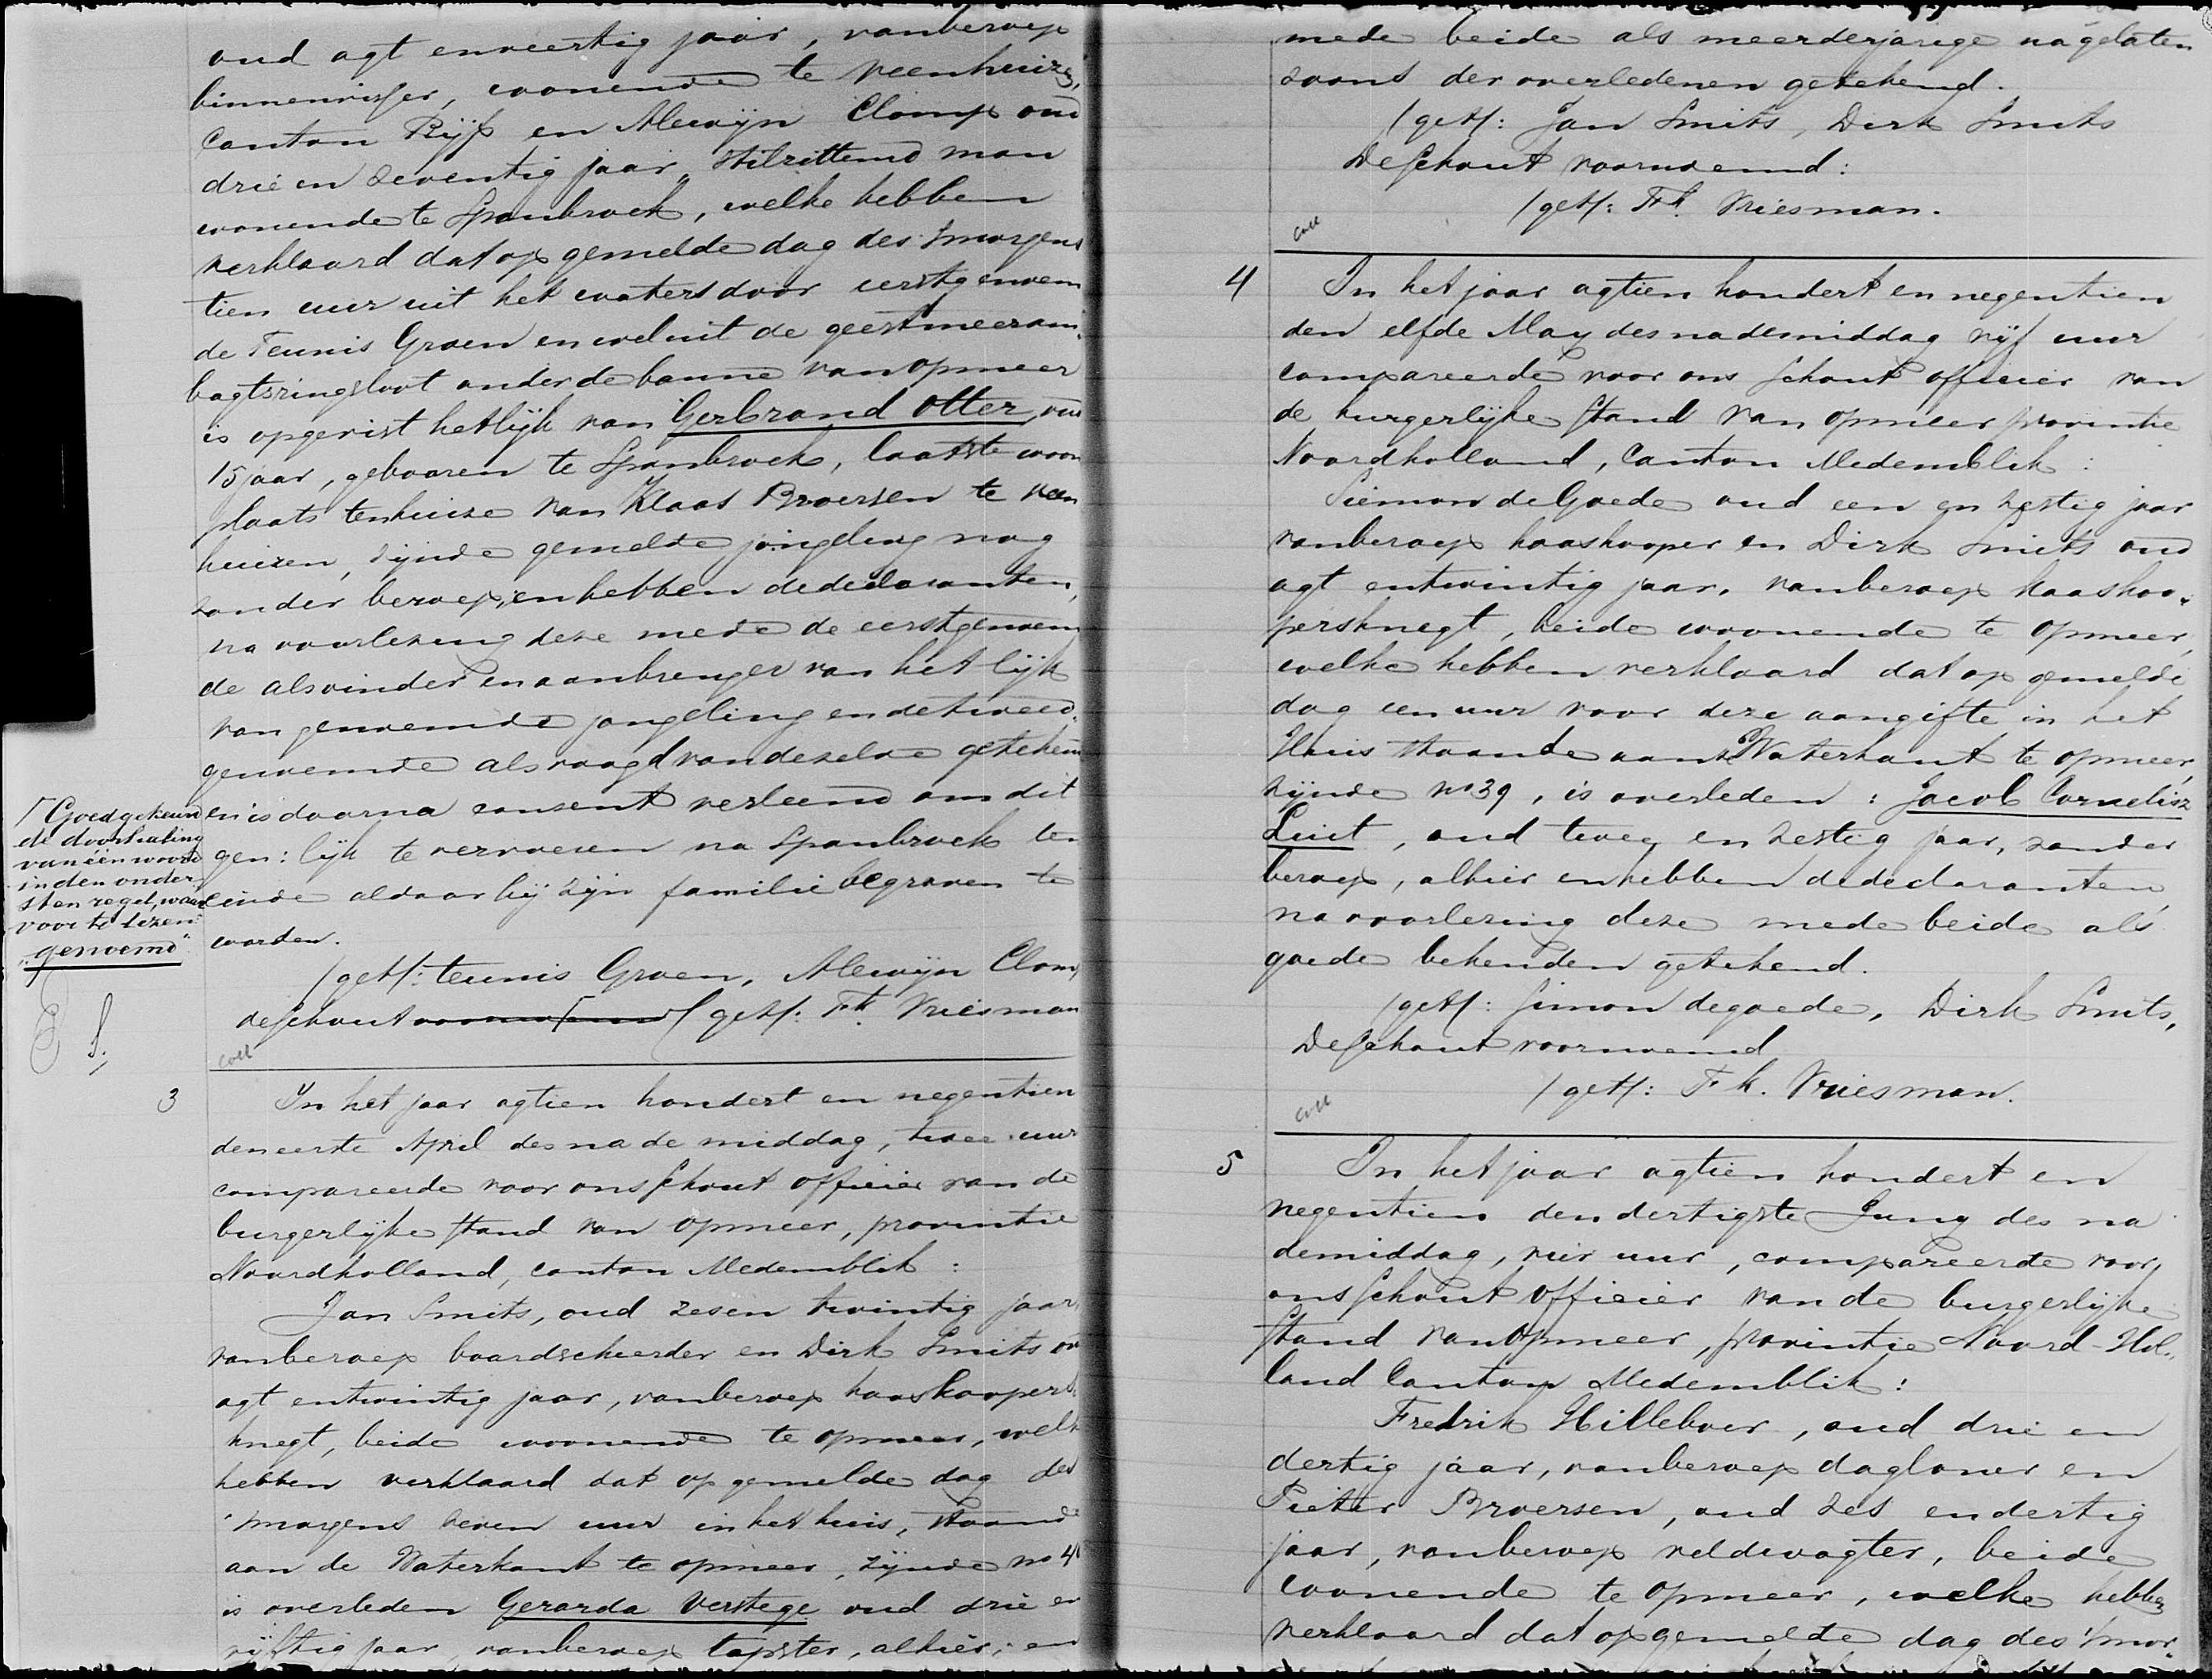 oud agt enveertig jaar, vanberoep
binnenvisser, woonende te Veenhuize,
Canton Rijp en Alewijn Clomp oud
drie en zeventig jaar stilzittend man
wonende te Spanbroek, welke hebben
verklaard dat op gemelde dag des smorgens
tien uur uit het waters door eerstgenoem
de Teunis Groen en wel uit de geestmeeram
bagtsringsloot onder de banne van opmeer
is opgevist het lijk van Gerbrand Otter, oud
15 jaar, gebooren te Spanbroek, laatste woon
plaats tenhuize van Klaas Broersen te veen
huizen, zijnde gemelde jongeling nog
zonder beroep, en hebben dedeclaranten,
na voorlezing deze mede de eerstgenoem
de als vinder en aanbrenger van het lijk
van genoemde jongeling en de tweed
genoemde als voogd vandezelve getekend
en is daarna consent verleend om dit
gen: lijk te vervoeren na Spanbroek ten
einde aldaar bij zijn familie begraven te
worden.
/get/: teunis Groen, Alewijn Clomp
deschout voornoemd /get/: Fk. Vriesman
coll
Goedgekeurd
de doorhaling
van één woord
in den onder
sten regel, waar
voor te lezen:
"genoemd"
3
In het jaar agtien hondert en negentien
den eerste April des na de middag, twee uur
compareerde voor ons schout officier van de
burgerlijke stand van opmeer, provintie
Noordholland, canton Medemblik:
Jan Smits, oud zesen twintig jaar,
vanberoep baardscheerder en Dirk Smits ou
agt entwintig jaar, vanberoep kaaskoopers
knegt, beide woonende te opmeer, welk
hebben verklaard dat op gemelde dag des
'smorgens zeven uur in het huis, staande
aan de Waterkant te opmeer, zijnde no 4
is overleden Gerarda Verstege oud drie en
vijftig jaar, vanberoep tapster, alhier, en
mede beide als meerderjarige nagelaten
zoons der overledenen getekend.
/get/: Jan Smits, Dirk Smits
De schout voornoemd:
/get/: Fk. Vriesman.
coll
4
In het jaar agtien hondert en negentien
den elfde May des nademiddag vijf uur
compareerde voor ons schout officier van
de burgerlijke stand van opmeer provintie
Noordholland, Canton Medemblik:
Siemon de Goede oud een en zestig jaar
vanberoep kaaskooper en Dirk Smits oud
agt entwintig jaar, vanberoep kaaskoo-
persknegt, beide woonende te opmeer,
welke hebben verklaard dat op gemelde
dag een uur voor deze aangifte in het
Huis staande aan de Waterkant te opmeer,
zijnde no 39, is overleden: Jacob Cornelisz
Luit, oud twee en zestig jaar, zonder
beroep, alhier en hebben dedeclaranten
na voorlezing deze mede beide als
goede bekenden getekend.
/get/: Simon degoede, Dirk Smits,
De schout voornoemd
/get/: Fk. Vriesman.
coll
5
In het jaar agtien hondert en
negentien den dertigste Juny des na
demiddag, vier uur, compareerde voor
ons schout officier van de burgerlijke
stand van Opmeer, provintie Noord-Hol-
land Canton Medemblik:
Fredrik Hilleboer, oud drie en
dertig jaar, vanberoep dagloner en
Pieter Broersen, oud zes endertig
jaar, vanberoep veldwagter, beide
woonende te opmeer, welke hebben
verklaard dat op gemelde dag des 'smor-